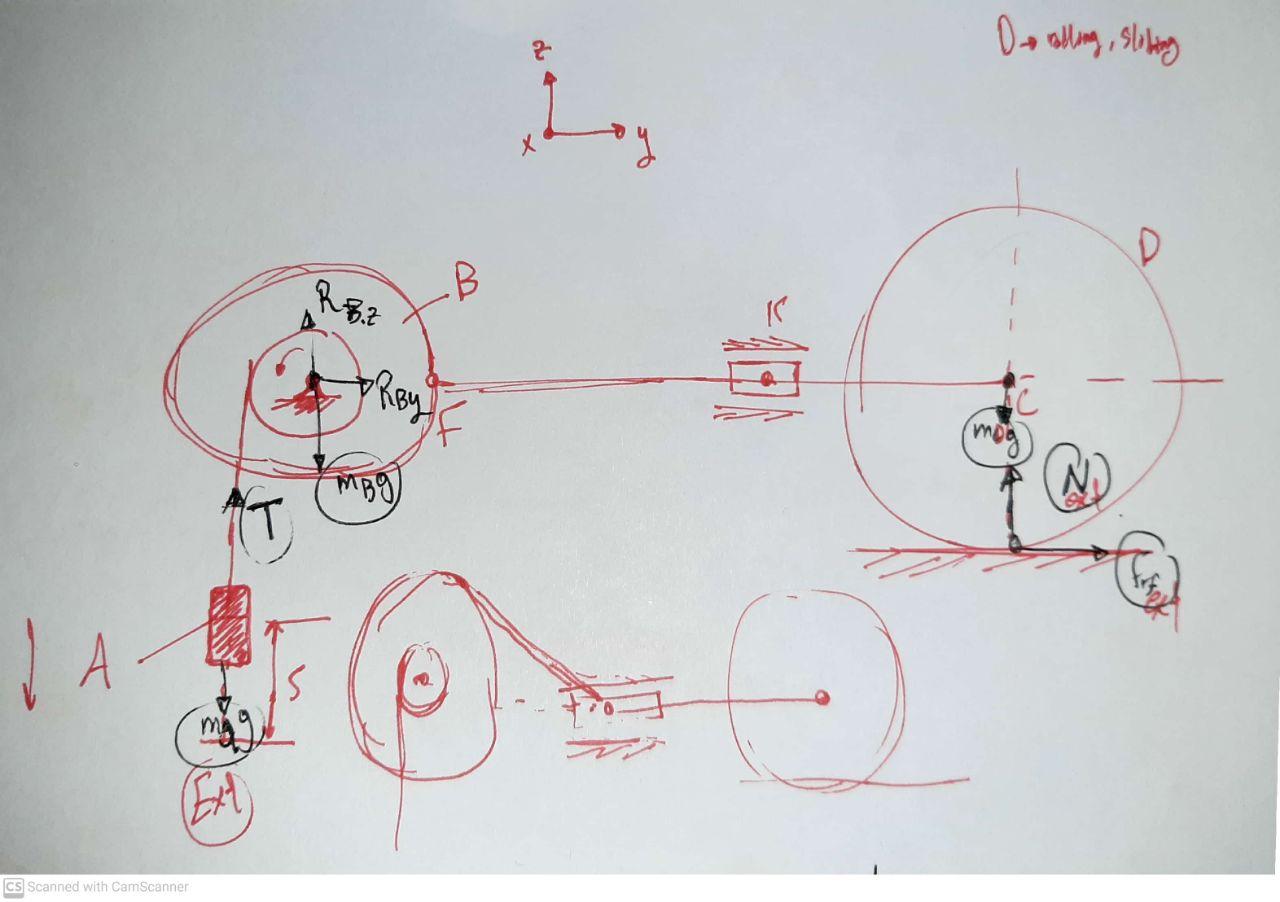 D → rolling, sliding
z
x
y
B
R B.z
R By
F
K
D
C
mDg
N
ext
mBg
T
frf
ext
A
S
mAg
Ext
CS Scanned with CamScanner